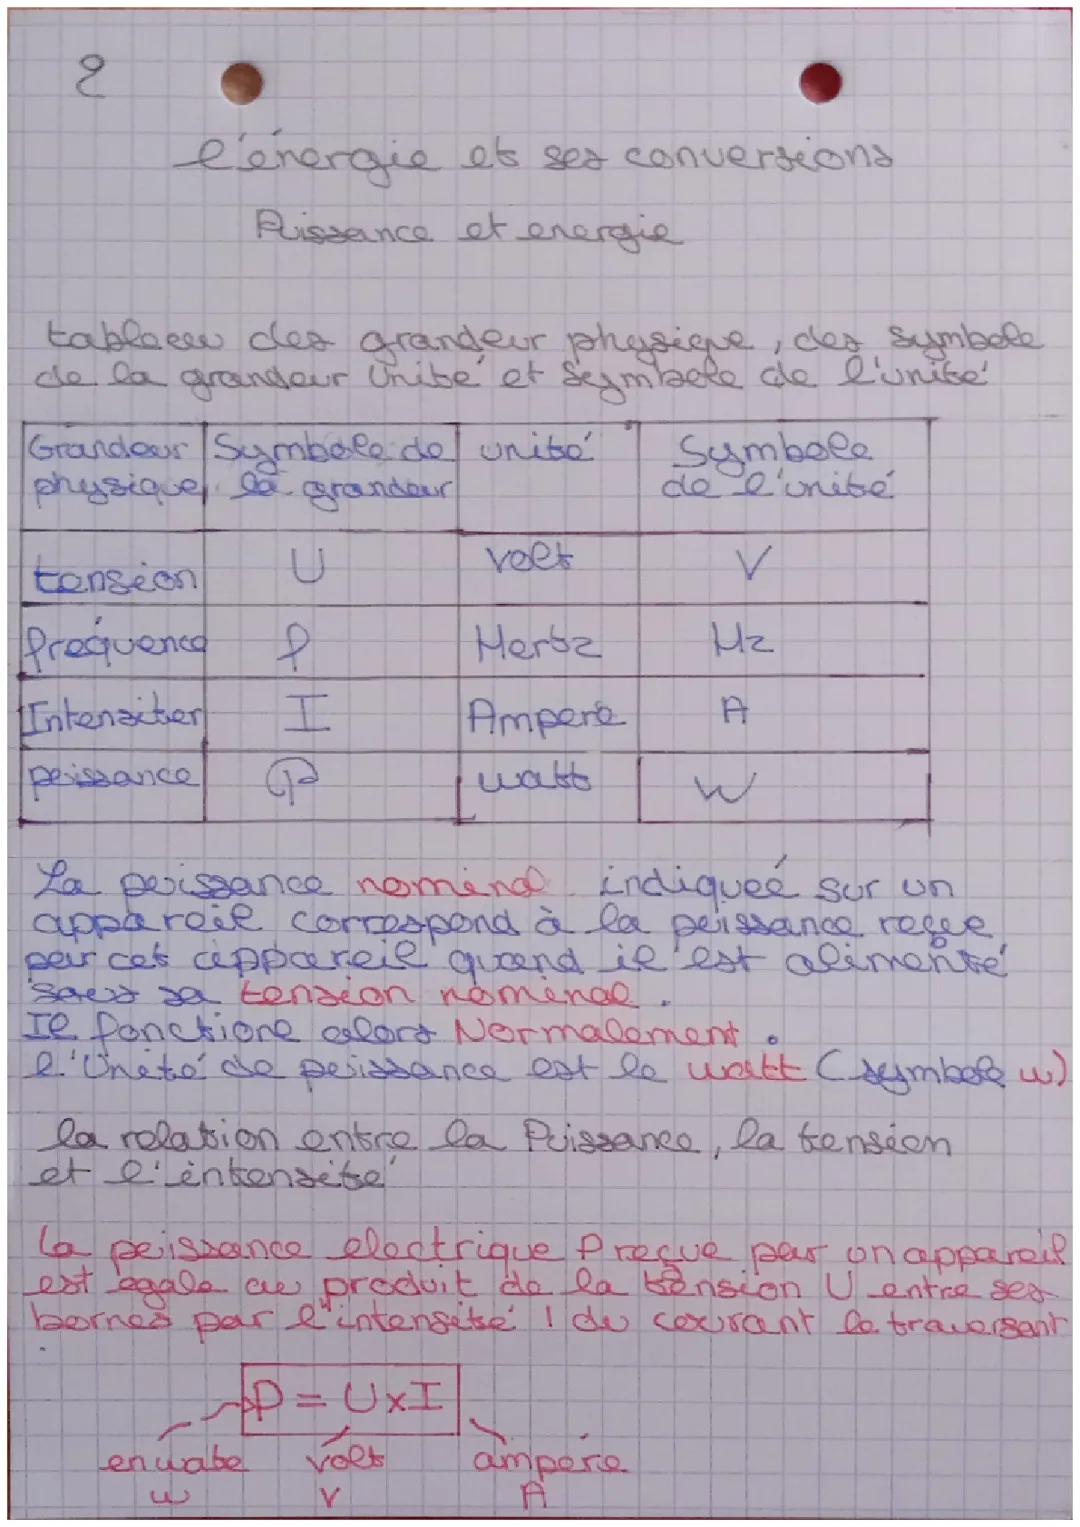 2
l'énergie et ses conversions
Puissance et energie
tableau des grandeur physique, des symbole
de la grandeur unité et symbole de l'unité
Grandeur physique Symbole de la grandeur unité Symbole de l'unité
tension U volt V
fréquence f Hertz Hz
Intensiter I Ampere A
puissance P watt W
La puissance nominal indiqueé sur un
appareil correspond à la puissance reçue
par cet appareil quand il est alimenté
sous sa tension nominal.
Il fonctione alors Normalement.
l'Unité de puissance est le watt (symbole w)
la relation entre la Puissance, la tension
et l'intensité
la puissance electrique P reçue par un appareil
est egale au produit de la tension U entre ses
bornes par l'intensité I du courant le traversant
P = U x I
en wate volt ampère
w V A